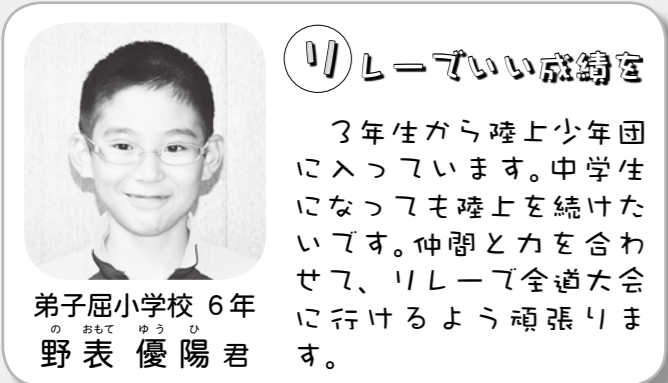 リレーでいい成績を
3年生から陸上少年団
に入っています。中学生
になっても陸上を続けた
いです。仲間と力を合わ
せて、リレーで全道大会
に行けるよう頑張りま
す。
弟子屈小学校 6年
の おもて ゆう ひ
野表 優陽 君